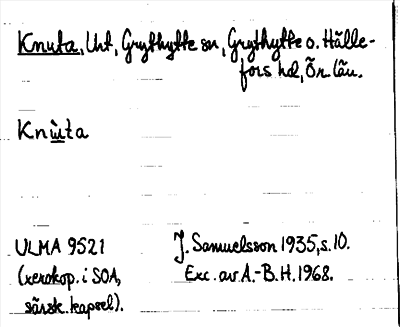 Knuta, Urt, Grythytte sn, Grythytte o. Hälle-
fors hd, Ör. län.
Knùta
ULMA 9521
(xerokop. i SOA,
särsk. kapsel).
J. Samuelsson 1935, s. 10.
Exc. av A.-B. H. 1968.